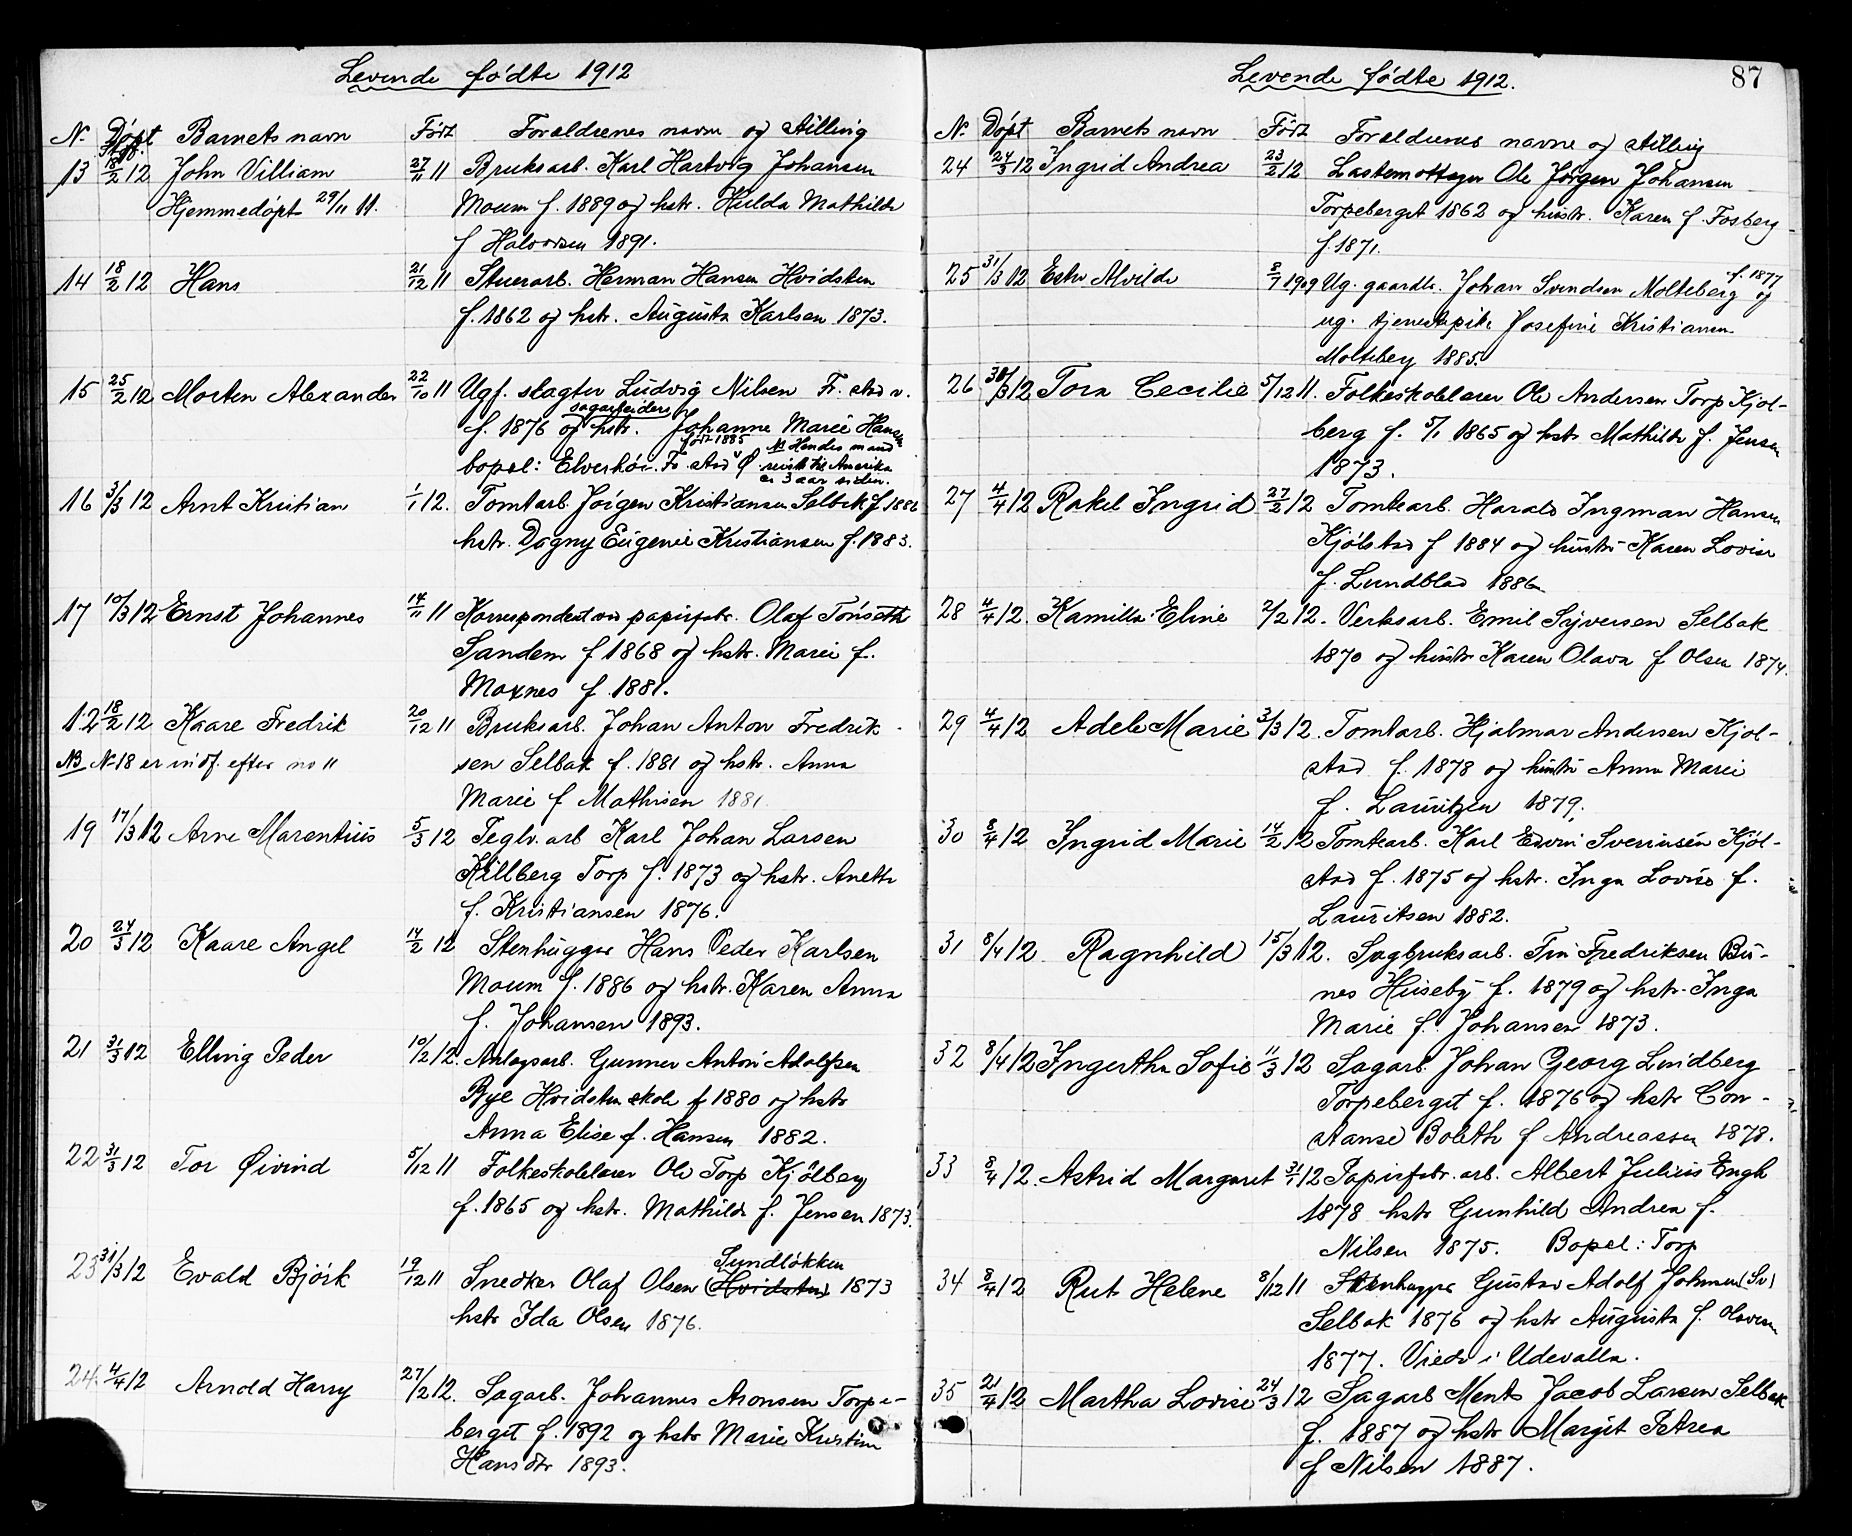 Levende fødte 1912
Nr. Døpt Barnets navn Født Forældrenes navn og stilling
13 18/2 12 John Villiam 27/11 11 Bruksarb. Karl Hartvig Johansen
Hjemmedøpt 29/11 11. Moum f. 1889 og hstr. Hulda Mathilde
f Halvorsen 1891.
14 18/2 12 Hans 21/12 11 Stuerarb. Herman Hansen Hvidsten
f. 1862 og hstr. Augusta Karlsen 1873.
15 25/2 12 Morten Alexander 22/10 11 Ugf. slagter Ludvig Nilsen Fr. stad v.
f. 1876 og hstr. sagarbeider Johanne Marie Hansen
født 1885 NB Hendes mand
bopæl: Elverhöi. Fr. stad Ø. reiste til Amerika
er 3 aar siden.
16 3/3 12 Arnt Kristian 1/1 12. Tomtarb. Jörgen Kristiansen Selbek f 1886
hstr. Dagny Eugenie Kristiansen f. 1883.
17 10/3 12 Ernst Johannes 14/11 11 Korrespondent ved papirfabr. Olaf Tönseth
Sandem f 1868 og hstr. Marie f.
Moxnes f. 1881.
12 18/2 12 Kaare Fredrik 20/12 11 Bruksarb. Johan Anton Fredrik-
NB No 18 er indf. efter no 11 sen Selbak f. 1881 og hstr. Anna
Marie f Mathisen 1881
19 17/3 12 Arne Marentius 5/3 12 Teglv. arb Karl Johan Larsen
Killberg Torp f. 1873 og hstr. Anette
f. Kristiansen 1876.
20 24/3 12 Kaare Angel 14/2 12 Stenhugger Hans Peder Karlsen
Moum f. 1886 og hstr. Karen Anna
f. Johansen 1893.
21 31/3 12 Elling Peder 10/2 12. Anlegsarb. Gunner Anton Adolfsen
Bye Hvidsten skole f 1880 og hstr
Anna Elise f. Hansen 1882.
22 31/3 12 Tor Øivind 5/12 11 Folkeskolelærer Ole Torp Kjölberg
f. 1865 og hstr. Mathilde f. Jensen 1873.
23 31/3 12 Evald Björk 19/12 11 Snedker Olaf Olsen (Hvidsten) Sundløkken 1873
hstr Ida Olsen 1876.
24. 4/4 12 Arnold Harry 27/2 12. Sagarb. Johannes Aronsen Torpe-
berget f. 1892 og hstr Marie Kristine
Hansdtr 1893.
Levende fødte 1912. 87
Nr. Døpt Barnets navn Født Forældrenes navne og stilling
24 24/3 12 Ingrid Andrea 23/2 12 Lastemottager Ole Jörgen Johansen
Torpeberget 1862 og hustr. Karen f. Fosberg
f. 1871.
25 31/3 12 Ester Alvilde 8/7 1909 Ug. gaardbr. Johan Svendsen Molteberg f. 1877 og
ug. tjenestepike Josefine Kristiansen
Molteberg 1885.
26 30/3 12 Tora Cecilie 5/12 11. Folkeskolelærer Ole Andersen Torp Kjol-
berg f. 5/1 1865 og hstr Mathilde f. Jensen
1873.
27 4/4 12 Rakel Ingrid 27/2 12 Tomtearb. Harald Ingman Hansen
Kjölstad f 1884 og hustr Karen Lovise
f. Lundblad 1886
28 4/4 12. Kamilla Eline 2/2 12. Verksarb. Emil Syversen Selbak
1870 og hustr Karen Olava f Olsen 1874.
29 4/4 12 Adele Marie 3/3 12. Tomtarb. Hjalmar Andersen Kjol-
stad f. 1878 og hustr Anna Marie
f. Lauritzen 1879.
30 8/4 12 Ingrid Marie 14/2 12 Tomtearb. Karl Edvin Sverinsen Kjöl-
stad f. 1875 og hstr. Inga Lovise f.
Lauritsen 1882.
31 8/4 12 Ragnhild 15/3 12. Sagbruksarb. Fin Fredriksen Bu-
nes Huseby f. 1879 og hstr. Inga
Marie f. Johansen 1873.
32 8/4 12 Ingertha Sofie 11/3 12 Sagarb. Johan Georg Lindberg
Torpeberget f. 1876 og hstr Con-
stanse Boleth f Andreassen 1878.
33 8/4 12. Astrid Margaret 31/1 12 Papirfabr. arb. Albert Julius Engh
1878 hstr Gunhild Andrea f.
Nilsen 1875. Bopæl: Torp
34 8/4 12 Rut Helene 8/12 11 Stenhugger Gustav Adolf Johansen (Sv)
Selbak 1876 og hstr Augusta f. Olavesen
1877. Viede i Udevalla.
35 21/4 12 Martha Lovise 24/3 12 Sagarb Ments Jacob Larsen Selbak
f. 1887 og hstr Margit Petrea
f Nilsen 1887.